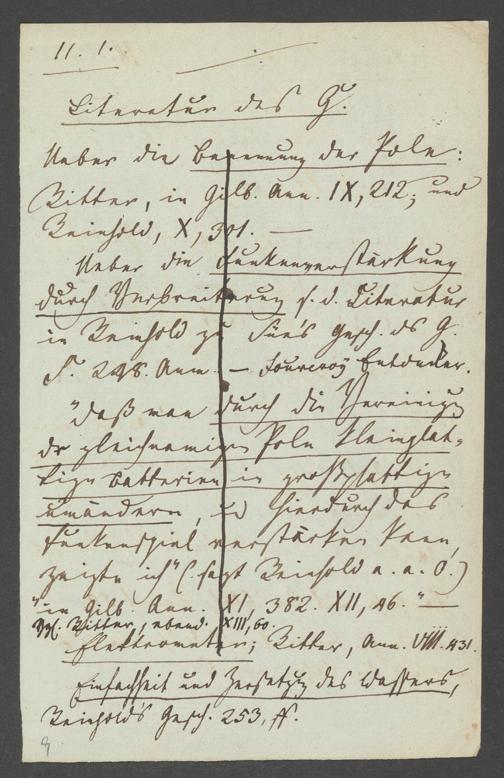 11. 1.
Literatur des G.
Ueber die Benennung der Pole:
Ritter, in Gilb. Ann. IX, 212; und
Reinhold, X, 301. —
Ueber die Funkenverstärkung
durch Verbreiterung s. d. Literatur
in Reinhold zu Süe's Gesch. des G.
S. 248. Anm. — Fourcroy Entdecker.
"Daß man durch die Vereinigg
der gleichnamigen Pole kleinplat-
tige Batterien in großplattige
umändern, und hierdurch das
Funkenspiel verstärken kann,
zeigte ich" (sagt Reinhold a. a. O.)
"in Gilb. Ann. XI, 382. XII, 46." —
Vgl. Ritter, ebend. XIII, 60.
Elektrometer; Ritter, Ann. VIII. 431.
Einfachheit und Zersetzg des Wassers,
Reinhold's Gesch. 253, ff.